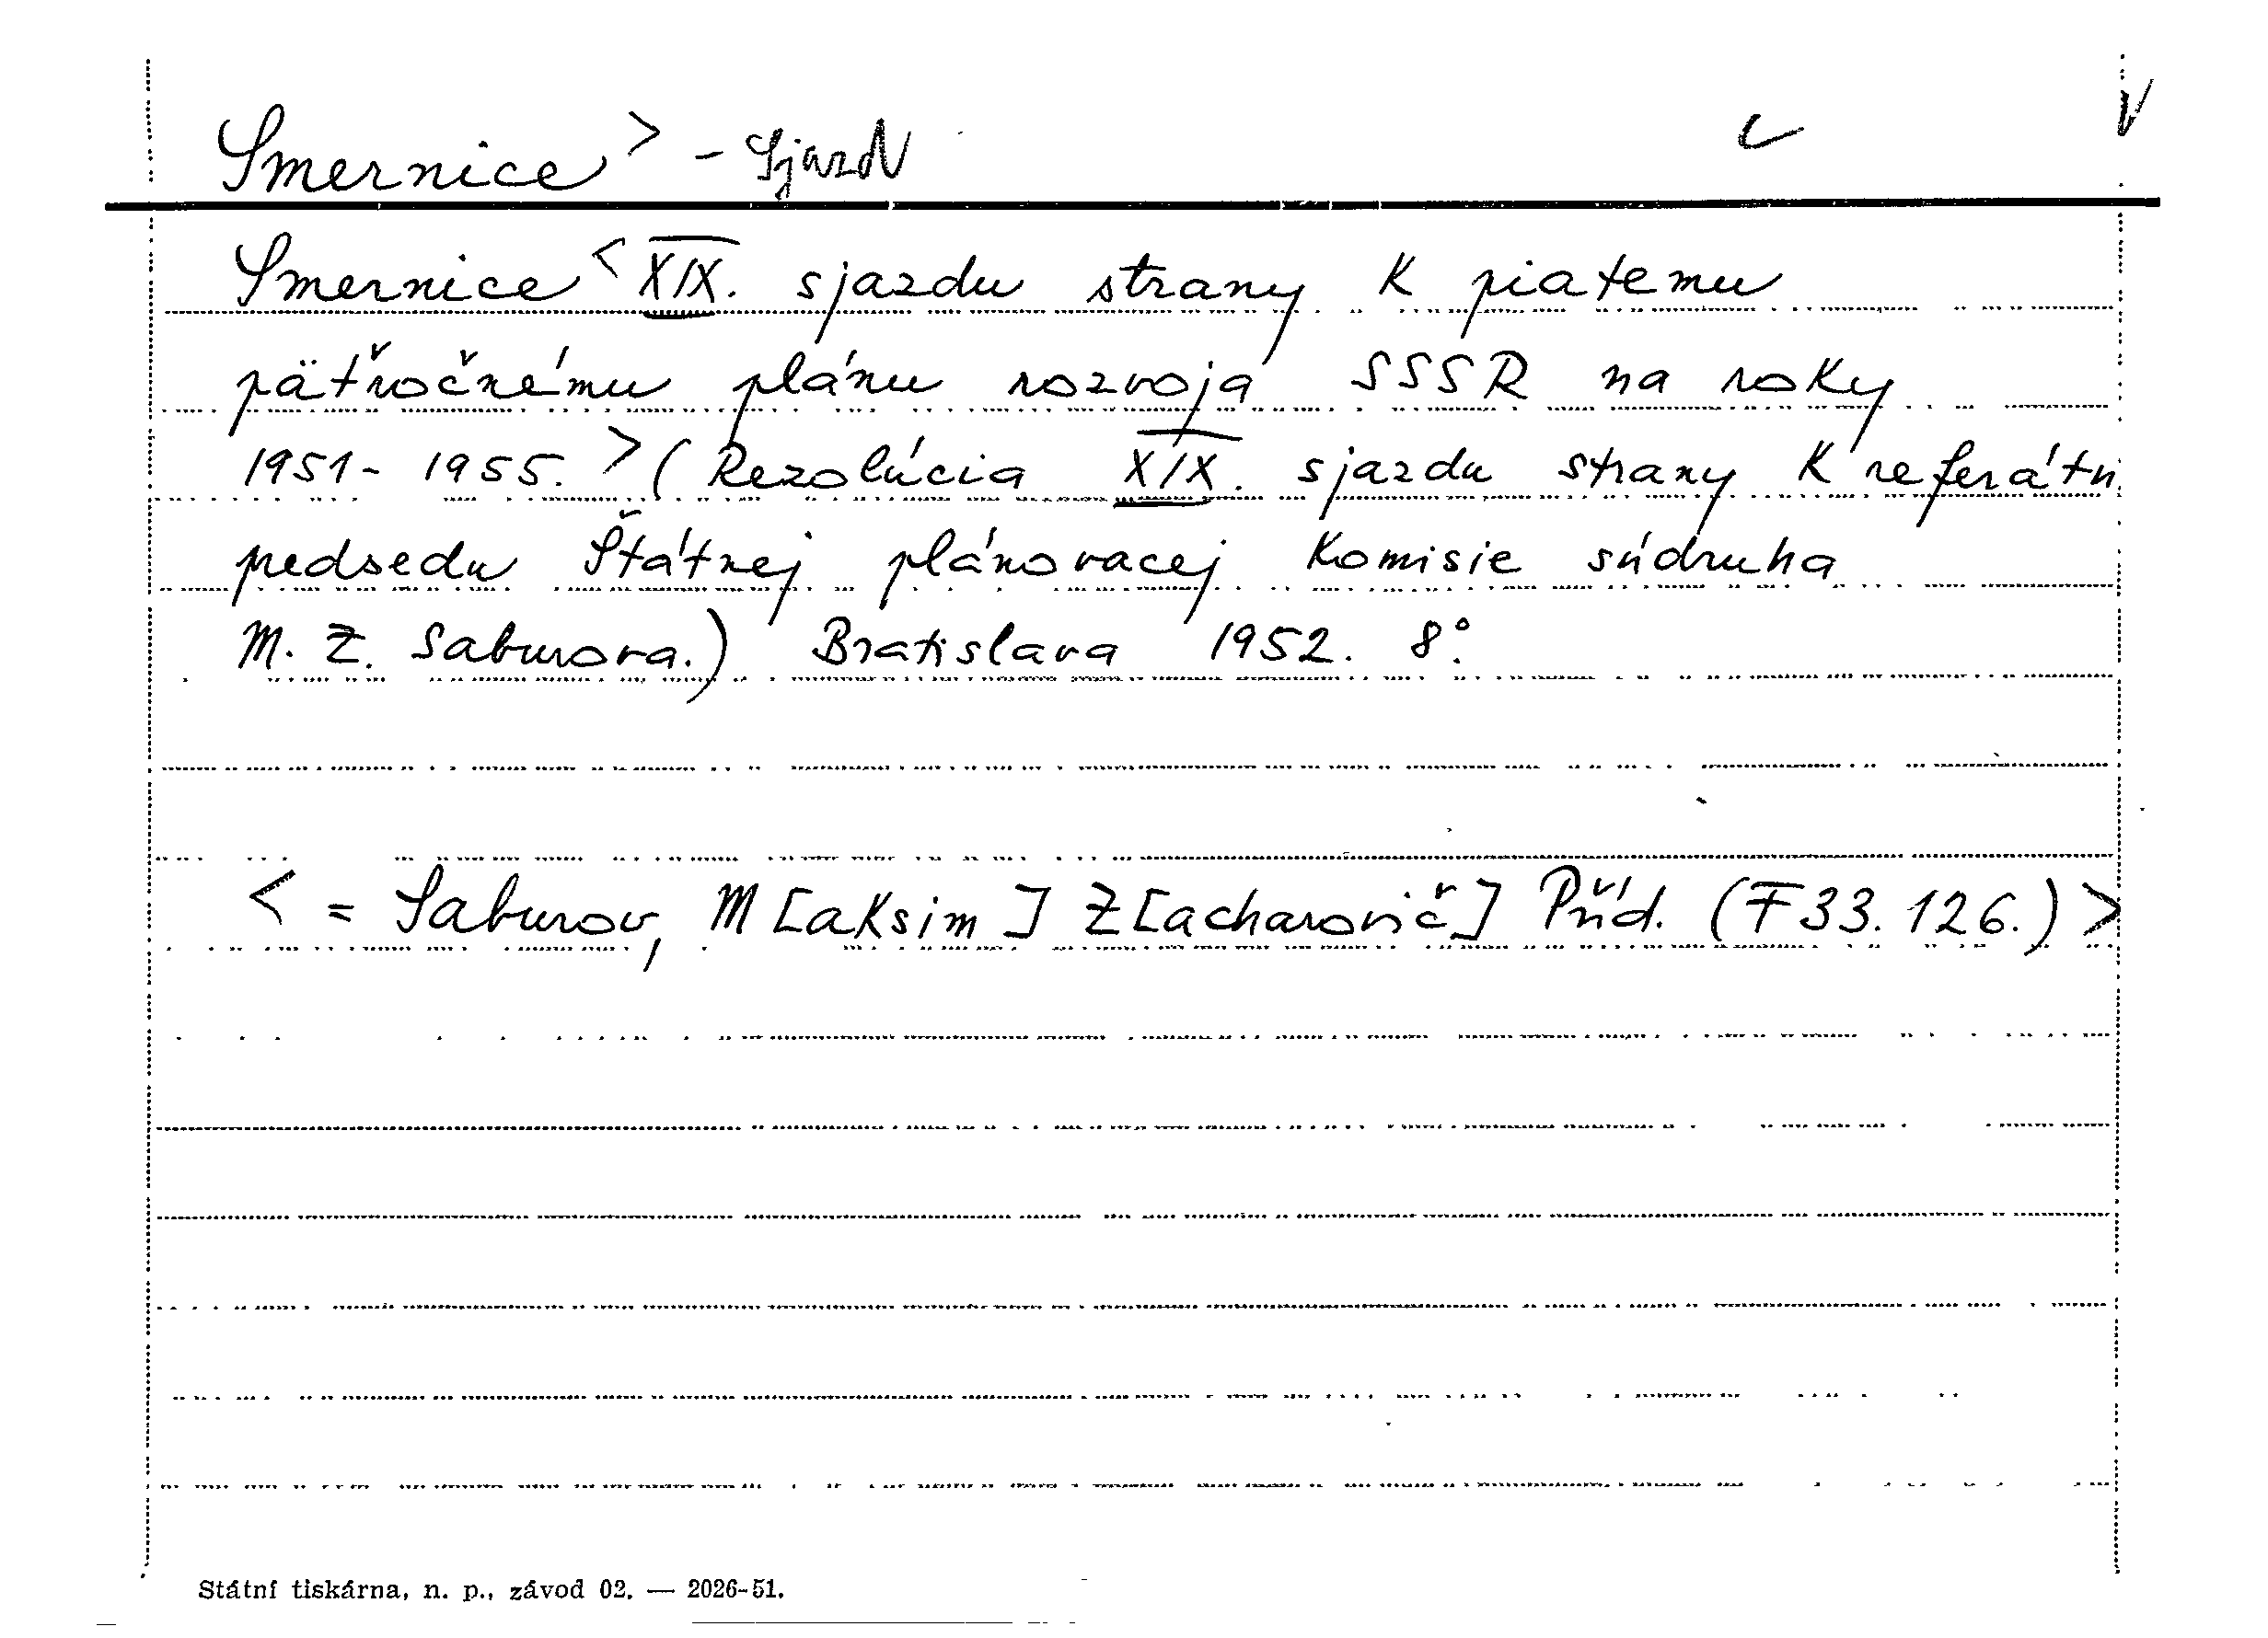 Smernice > - Sjazd
Smernice < XIX. sjazdu strany k piatemu
päťročnému plánu rozvoja SSSR na roky
1951-1955. > (Rezolúcia XIX. sjazdu strany k referátu
predsedu Štátnej plánovacej komisie súdruha
M. Z. Saburova.) Bratislava 1952. 8°.
< = Saburov, M[aksim] Z[acharovič] Příd. (F33.126.) >
Státní tiskárna, n. p., závod 02. — 2026-51.